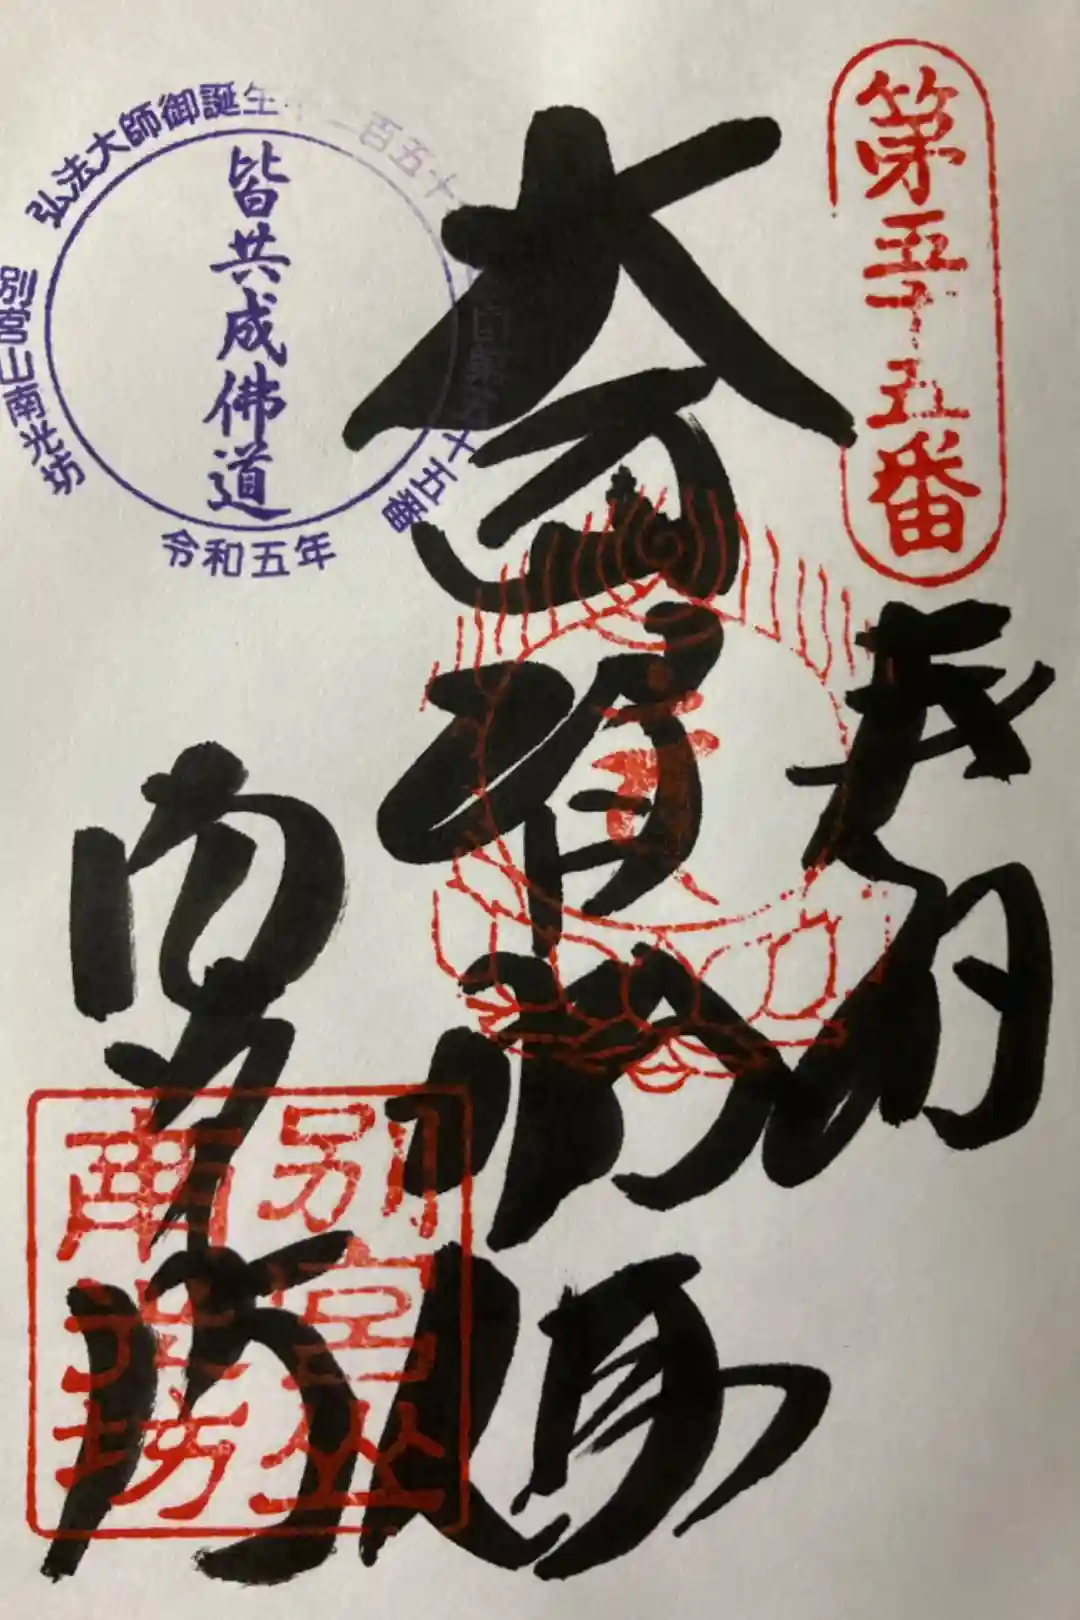 第五十五番
奉拝
大通智勝佛
南光坊
別宮山
南光坊
弘法大師御誕生千二百五十年
四国第五十五番
別宮山南光坊
令和五年
皆共成佛道